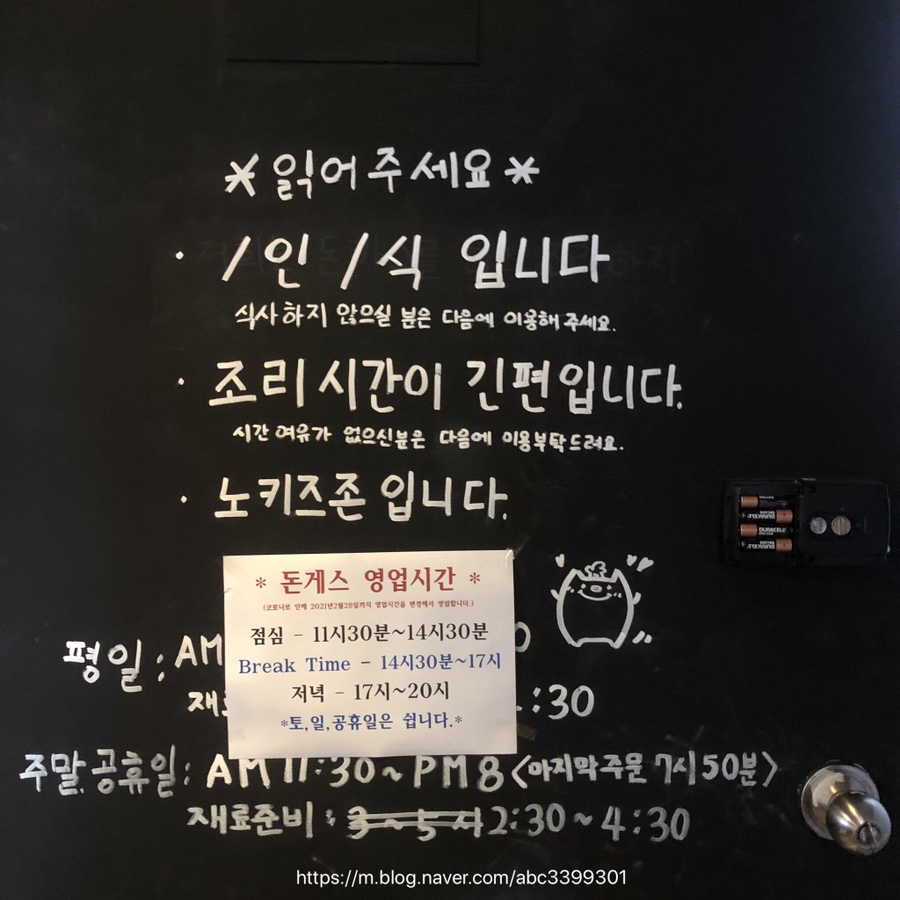 *읽어주세요*
· /인 /식 입니다
식사하지 않으실 분은 다음에 이용해주세요.
· 조리시간이 긴편입니다.
시간 여유가 없으신분은 다음에 이용부탁드려요.
· 노키즈존입니다.
* 돈게스 영업시간 *
(코로나로 인해 2021년2월28일까지 영업시간을 변경해서 영업합니다.)
점심 - 11시30분~14시30분
Break Time - 14시30분~17시
저녁 - 17시~20시
*토,일,공휴일은 쉽니다.*
평일: AM
:30
주말.공휴일: AM 11:30~PM8<마지막주문 7시50분>
재료준비: 3~5시 2:30~4:30
DURACELL
https://m.blog.naver.com/abc3399301